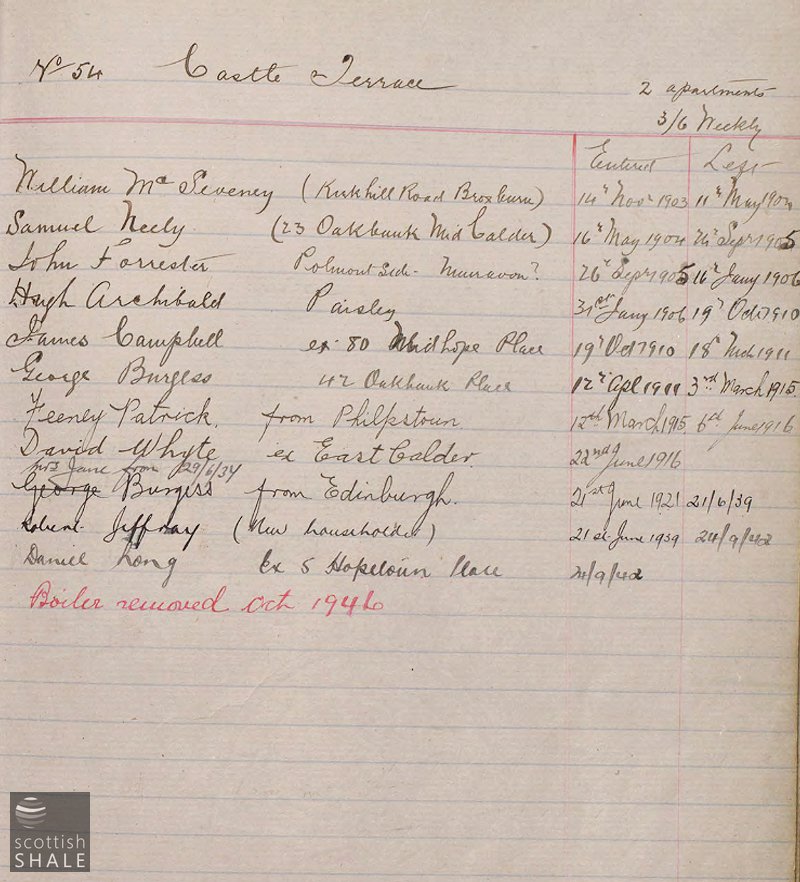 No 54 Castle Terrace
2 apartments
3/6 Weekly
Entered Left
William Mc Seveney (Kirkhill Road Broxburn) 14th Novr 1903 11th May 1904
Samuel Neely (23 Oakbank Mid Calder) 16th May 1904 Septr 1905
John Forrester Polmont Side - 26th Septr 1905 16th Jany 1906
Hugh Archibald Paisley 31st Jany 1906 19th Oct 1910
James Campbell ex 80 Midhope Place 19th Oct 1910 18th Mch 1911
George Burgess 42 Oakbank Place 12th Apl 1911 3rd March 1915.
Feeney Patrick. from Philpstoun. 12th March 1915. 6th June 1916
David Whyte ex East Calder. 22nd June 1916
Mrs Jane from 29/6/34
George Burgess from Edinburgh. 21st June 1921 21/6/39
Robert Jeffray (New householder) 21st June 1939 24/9/42
Daniel Long Ex 5 Hopetoun Place 24/9/42
Boiler removed Oct 1946
scottish
SHALE